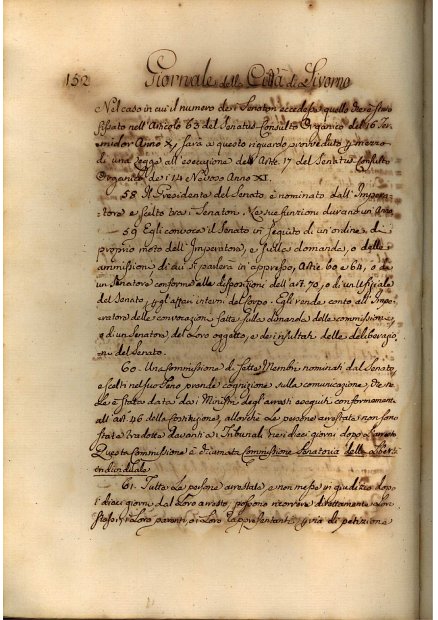 152 Giornale della Città di Livorno
Nel caso in cui il numero dei Senatori eccedesse quello che è stato
fissato nell'Articolo 63 del Senatus Consulto Organico del 16 Ter-
midor Anno X, sarà a questo riguardo provveduto p mezzo
di una Legge all'esecuzione dell'Art. 17 del Senatus Consulto
Organico de' 14 Nevoso Anno XI.
58. Il Presidente del Senato è nominato dall'Impera-
tore e scelto tra i Senatori. Le sue funzioni durano un Anno
59. Egli convoca il Senato in seguito di un ordine di
proprio moto dell'Imperatore, e sulla domanda, o delle
Commissioni di cui si parlerà in appresso, Artic. 60 e 64, o di
un Senatore conforme alle disposizioni dell'art. 70, o di un Uffiziale
del Senato, p gl'affari interni del Corpo. Egli rende conto all'Impe-
ratore delle convocazioni fatte sulla dimanda delle commissioni,
o di un Senatore, del loro oggetto, e dei resultati delle deliberazio-
ni del Senato.
60. Una Commissione di sette Membri nominati dal Senato,
e scelti nel suo Seno prende cognizione sulla comunicazione, che
le è stata data dai Ministri degli arresti eseguiti conformemente
all'art. 46 della Costituzione, allorchè le persone arrestate non sono
state tradotte davanti ai Tribunali nei dieci giorni dopo l'arresto
Questa Commissione è chiamata Commissione Senatoria della Libertà
individuale
61. Tutte le persone arrestate, e non messe in giudizio dopo
i dieci giorni dal Loro arresto, possono ricorrere direttamente da Loro
stesse, p i Loro parenti, o i Loro rappresentanti, p via di petizione